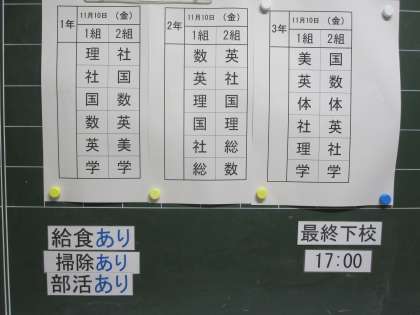 1年 11月10日（金）
1組 2組
理 社
社 国
国 数
数 英
英 美
学 学
2年 11月10日（金）
1組 2組
数 英
英 社
理 国
国 理
社 総
総 数
3年 11月10日（金）
1組 2組
美 国
英 数
体 体
社 英
理 社
学 学
給食あり
掃除あり
部活あり
最終下校
17:00